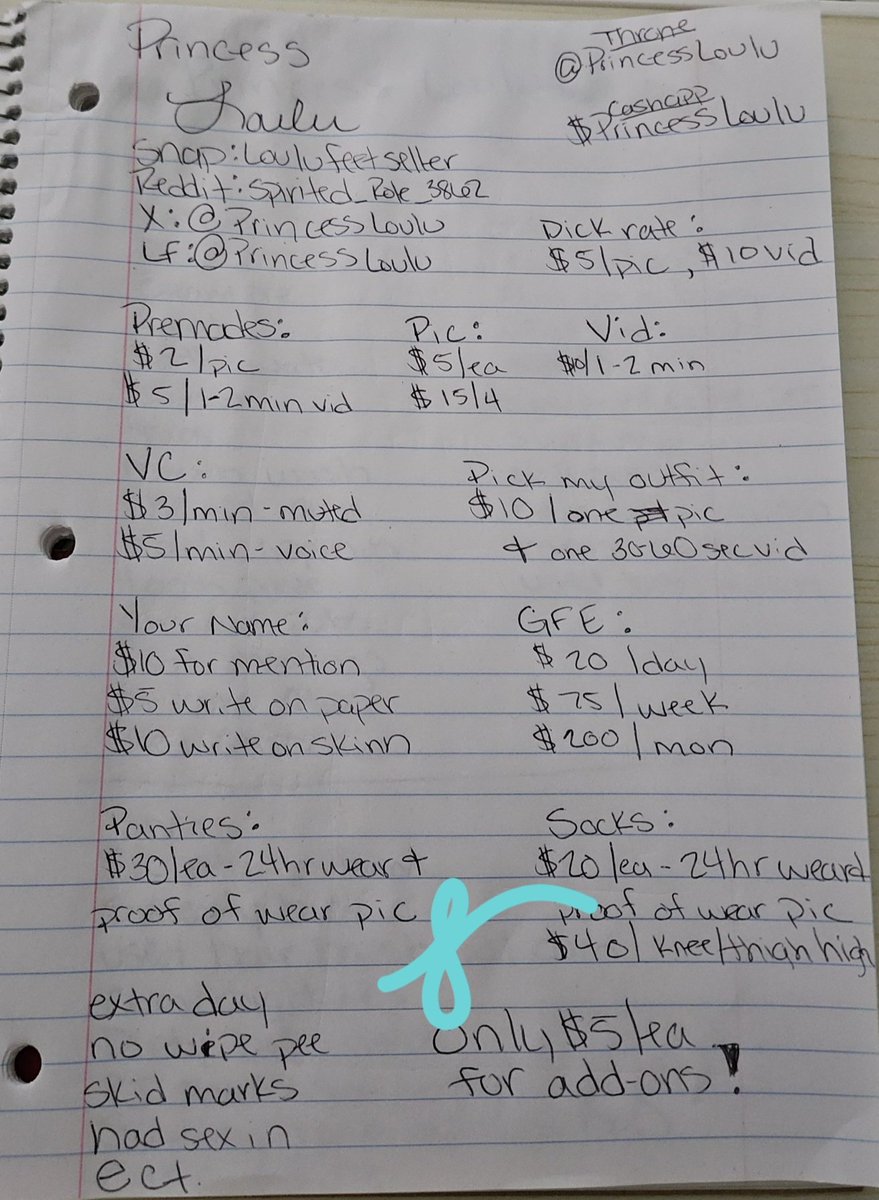 Princess
Loulu
Throne
@PrincessLoulu
Cashapp
$PrincessLoulu
Snap: Loulufeetseller
Reddit: Sprited_Role_3862
X: @PrincessLoulu
LF: @PrincessLoulu
Dick rate:
$5/pic, $10 vid
Premades:
$2/pic
$5/1-2 min vid
Pic:
$5/ea
$15/4
Vid:
$10/1-2 min
VC:
$3/min - muted
$5/min - voice
Pick my outfit:
$10/one pic
+ one 30-60 sec vid
Your Name:
$10 for mention
$5 write on paper
$10 write on skinn
GFE:
$20/day
$75/week
$200/mon
Panties:
$30/ea - 24hr wear +
proof of wear pic
Socks:
$20/ea - 24hr wear +
proof of wear pic
$40/knee/thigh high
extra day
no wipe pee
skid marks
had sex in
ect.
only $5/ea
for add-ons!